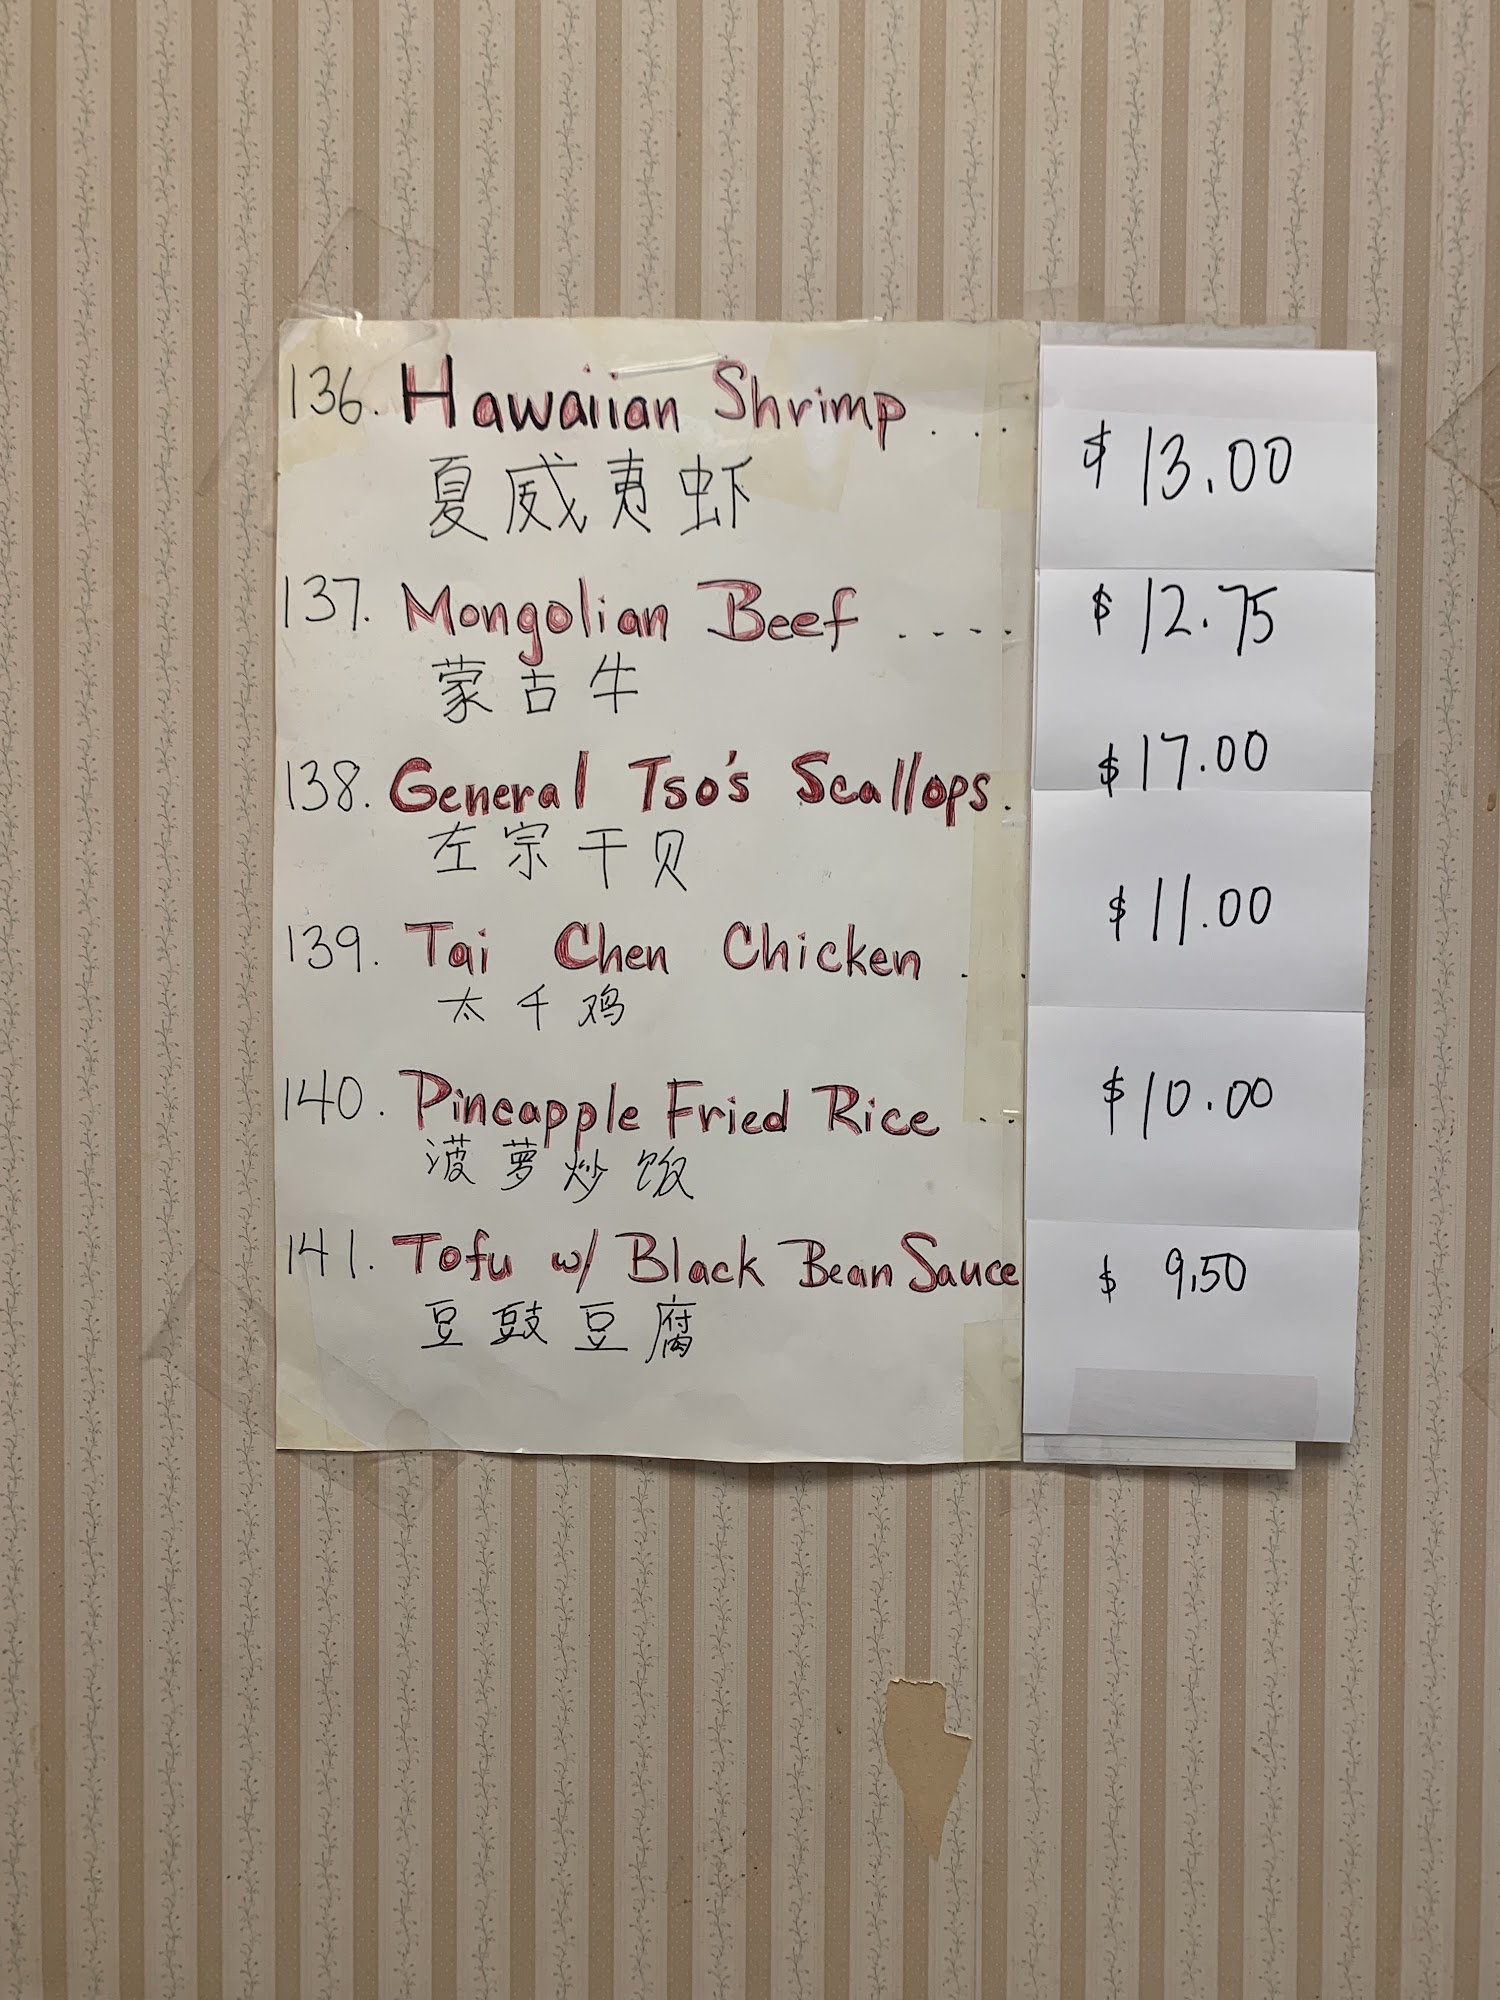 136. Hawaiian Shrimp . . . $ 13.00
夏威夷虾
137. Mongolian Beef . . . . $ 12.75
蒙古牛
138. General Tso's Scallops. $ 17.00
左宗干贝
139. Tai Chen Chicken . . $ 11.00
太千鸡
140. Pineapple Fried Rice . . $ 10.00
菠萝炒饭
141. Tofu w/ Black Bean Sauce $ 9.50
豆豉豆腐